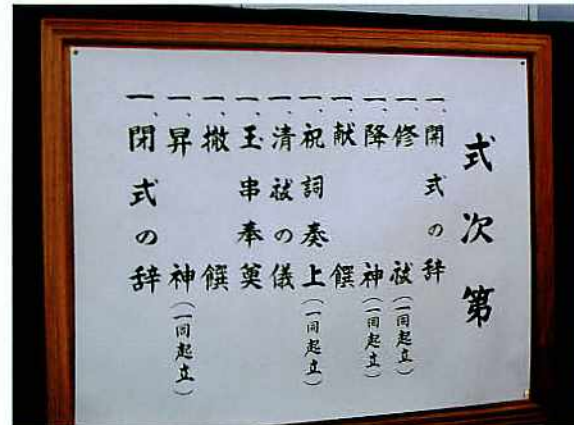 式次第
一、開式の辞
一、修祓(一同起立)
一、降神(一同起立)
一、献饌
一、祝詞奏上(一同起立)
一、清祓の儀
一、玉串奉奠
一、撤饌
一、昇神(一同起立)
一、閉式の辞